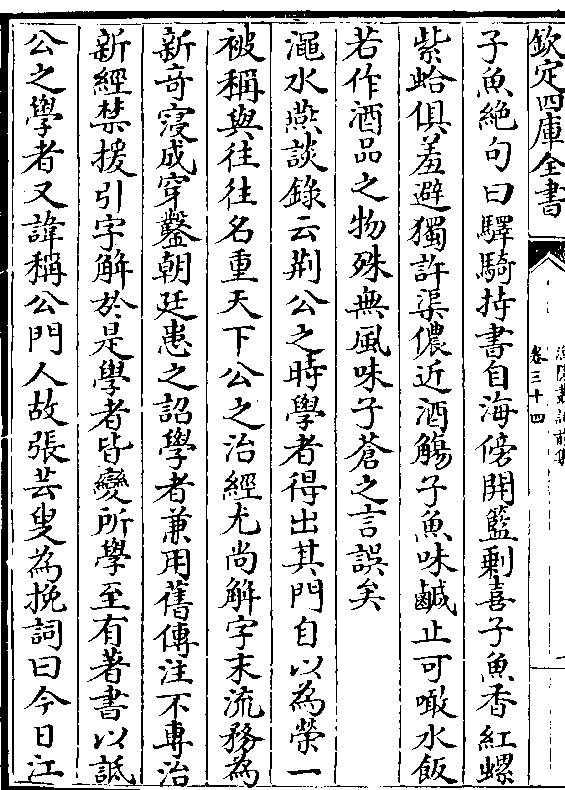 欽定四庫全書
卷三十四
子魚絶句曰驛騎持書自海傍開籃剩喜子魚香紅螺
紫蛤俱羞避獨許渠儂近酒觴子魚味鹹止可噉水飯
若作酒品之物殊無風味子蒼之言誤矣
澠水燕談錄云荆公之時學者得出其門自以為榮一
被稱與往往名重天下公之治經尤尚解字末流務為
新奇寖成穿鑿朝廷患之詔學者兼用舊傳注不專治
新經禁援引字解於是學者皆變所學至有著書以詆
公之學者又諱稱公門人故張芸叟為挽詞曰今日江